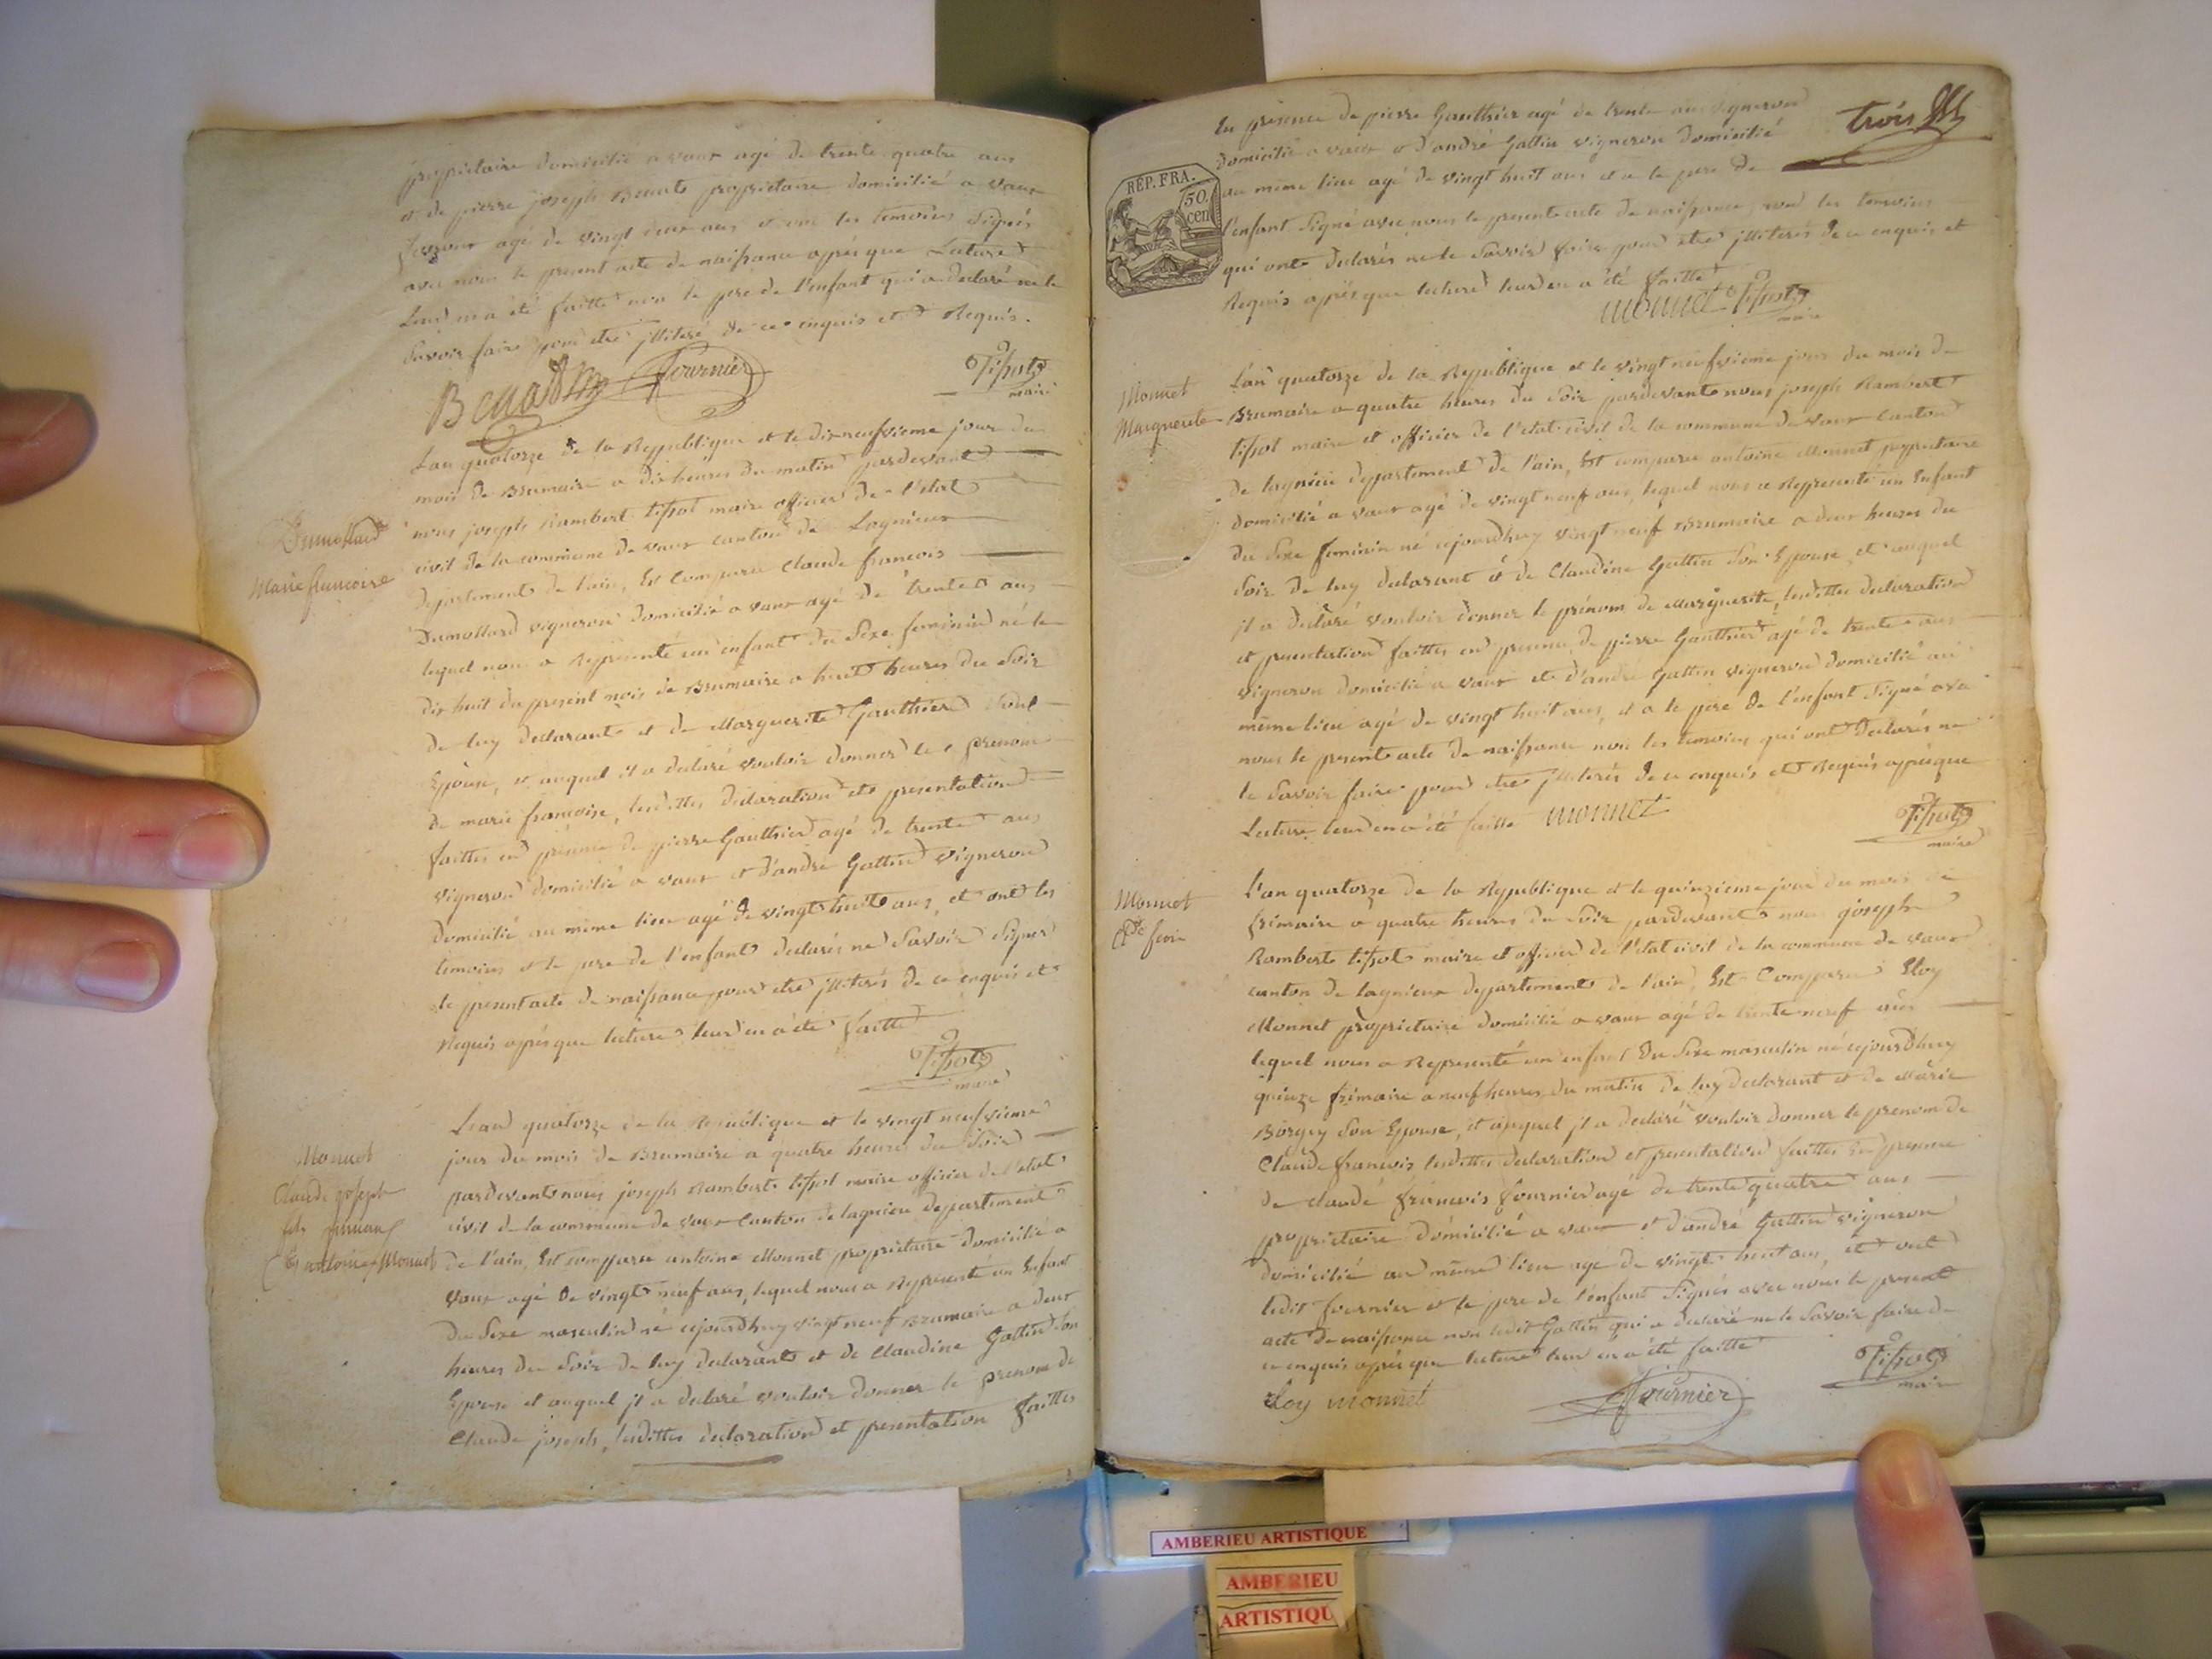 propriétaire domicilié a vaux agé de trente quatre ans
et de pierre joseph Benarts propriétaire domicilié a vaux
agé de vingt deux ans et ont les temoins Signés
avec nous le present acte de naissance apres que Lecture
Leur en a été faitte non le pere de l'enfant qui a declaré ne le
Savoir faire pour etre jlliteré de ce enquis et Requis.
Fournier
Tissot
maire
Dumollard
Marie francoise
Lan quatorze de la Republique et le dix neufvieme jour du
mois de Brumaire a dix heures du matin pardevant
nous joseph Rambert tissot maire officier de l'etat
civil de la commune de vaux canton de Lagnieux
departement de l'ain, Est Comparu Claude francois
Dumollard vigneron domicilié a vaux agé de trente ans
lequel nous a Représenté un enfant du Sexe feminin né le
dix huit du present mois de Brumaire a huit heures du Soir
de luy declarant et de Marguerite Gauthier Son
Epouse, et auquel il a declaré vouloir donner le prenom
de marie francoise, lesdittes declaration et presentation
faittes en présence de pierre Gauthier agé de trente ans
vigneron domicilié a vaux et d'andré Gallin vigneron
domicilié au même lieu agé de vingt huit ans, et ont les
temoins et le pere de l'enfant declarés ne Savoir Signer
le present acte de naissance pour etre jlliterés de ce enquis et
Requis apres que lecture leur en a été faitte
Tissot
maire
Monnet
Claude joseph
fils
antoine Monnet
Lan quatorze de la République et le vingt neufvieme
jour du mois de Brumaire a quatre heures du Soir
pardevant nous joseph Rambert tissot maire officier de l'etat
civil de la commune de vaux Canton de lagnieu departement
de l'ain, Est comparu antoine Monnet propriétaire domicilié a
vaux agé de vingt neuf ans, lequel nous a Représenté un Enfant
du Sexe masculin né cejourdhuy vingt neuf Brumaire a deux
heures du Soir de luy declarant et de Claudine Gallin Son
Epouse et auquel jl a declaré vouloir donner le prenom de
Claude joseph, lesdittes declaration et presentation faittes
trois
REP. FRA.
50
cen
En présence de pierre Gauthier agé de trente ans vigneron
domicilié a vaux et d'andré Gallin vigneron domicilié
au même lieu agé de vingt huit ans et a le pere de
l'enfant Signé avec nous le present acte de naissance, non les temoins
qui ont declarés ne le Savoir faire pour etre jlliterés de ce enquis et
Requis après que lecture leur en a été faitte
monnet Tissot
maire
Monnet
Marguerite
L'an quatorze de la Republique et le vingt neufvieme jour du mois de
Brumaire a quatre heures du Soir pardevant nous joseph Rambert
tissot maire et officier de l'etat civil de la commune de vaux Canton
de lagnieu departement de l'ain, Est comparu antoine Monnet propriétaire
domicilié a vaux agé de vingt neuf ans, lequel nous a Représenté un Enfant
du Sexe feminin né cejourdhuy vingt neuf Brumaire a deux heures du
Soir de luy declarant et de Claudine Gallin Son Epouse, et auquel
jl a declaré vouloir donner le prénom de Marguerite, lesdittes declaration
et presentation faittes en presence de pierre Gauthier agé de trente ans
vigneron domicilié a vaux et d'andré Gallin vigneron domicilié au
même lieu agé de vingt huit ans, et a le pere de l'enfant Signé avec
nous le present acte de naissance non les temoins qui ont declarés ne
le Savoir faire pour etre jlliterés de ce enquis et Requis apres que
Lecture leur en a été faitte monnet
Tissot
maire
Monnet
L'an quatorze de la Republique et le quinzieme jour du mois de
frimaire a quatre heures du Soir pardevant nous joseph
Rambert tissot maire et officier de l'etat civil de la commune de vaux
canton de lagnieux departement de l'ain, Est Comparu Eloy
Monnet propriétaire domicilié a vaux agé de trente neuf ans
lequel nous a Représenté un enfant du Sexe masculin né cejourdhuy
quinze frimaire a neuf heures du matin de luy declarant et de Marie
Borgey Son Epouse, et auquel jl a declaré vouloir donner le prenom de
Claude francois, lesdittes declaration et presentation faittes En presence
de claude francois fournier agé de trente quatre ans
propriétaire domicilié a vaux et d'andré Gallin vigneron
domicilié au même lieu agé de vingt huit ans, et ont
ledit fournier et le pere de l'enfant Signés avec nous le present
acte de naissance non ledit Gallin qui a declaré ne le Savoir faire de
ce enquis apres que lecture leur en a été faitte
Eloy monnet
Fournier
Tissot
maire
AMBERIEU ARTISTIQUE
AMBERIEU
ARTISTIQU